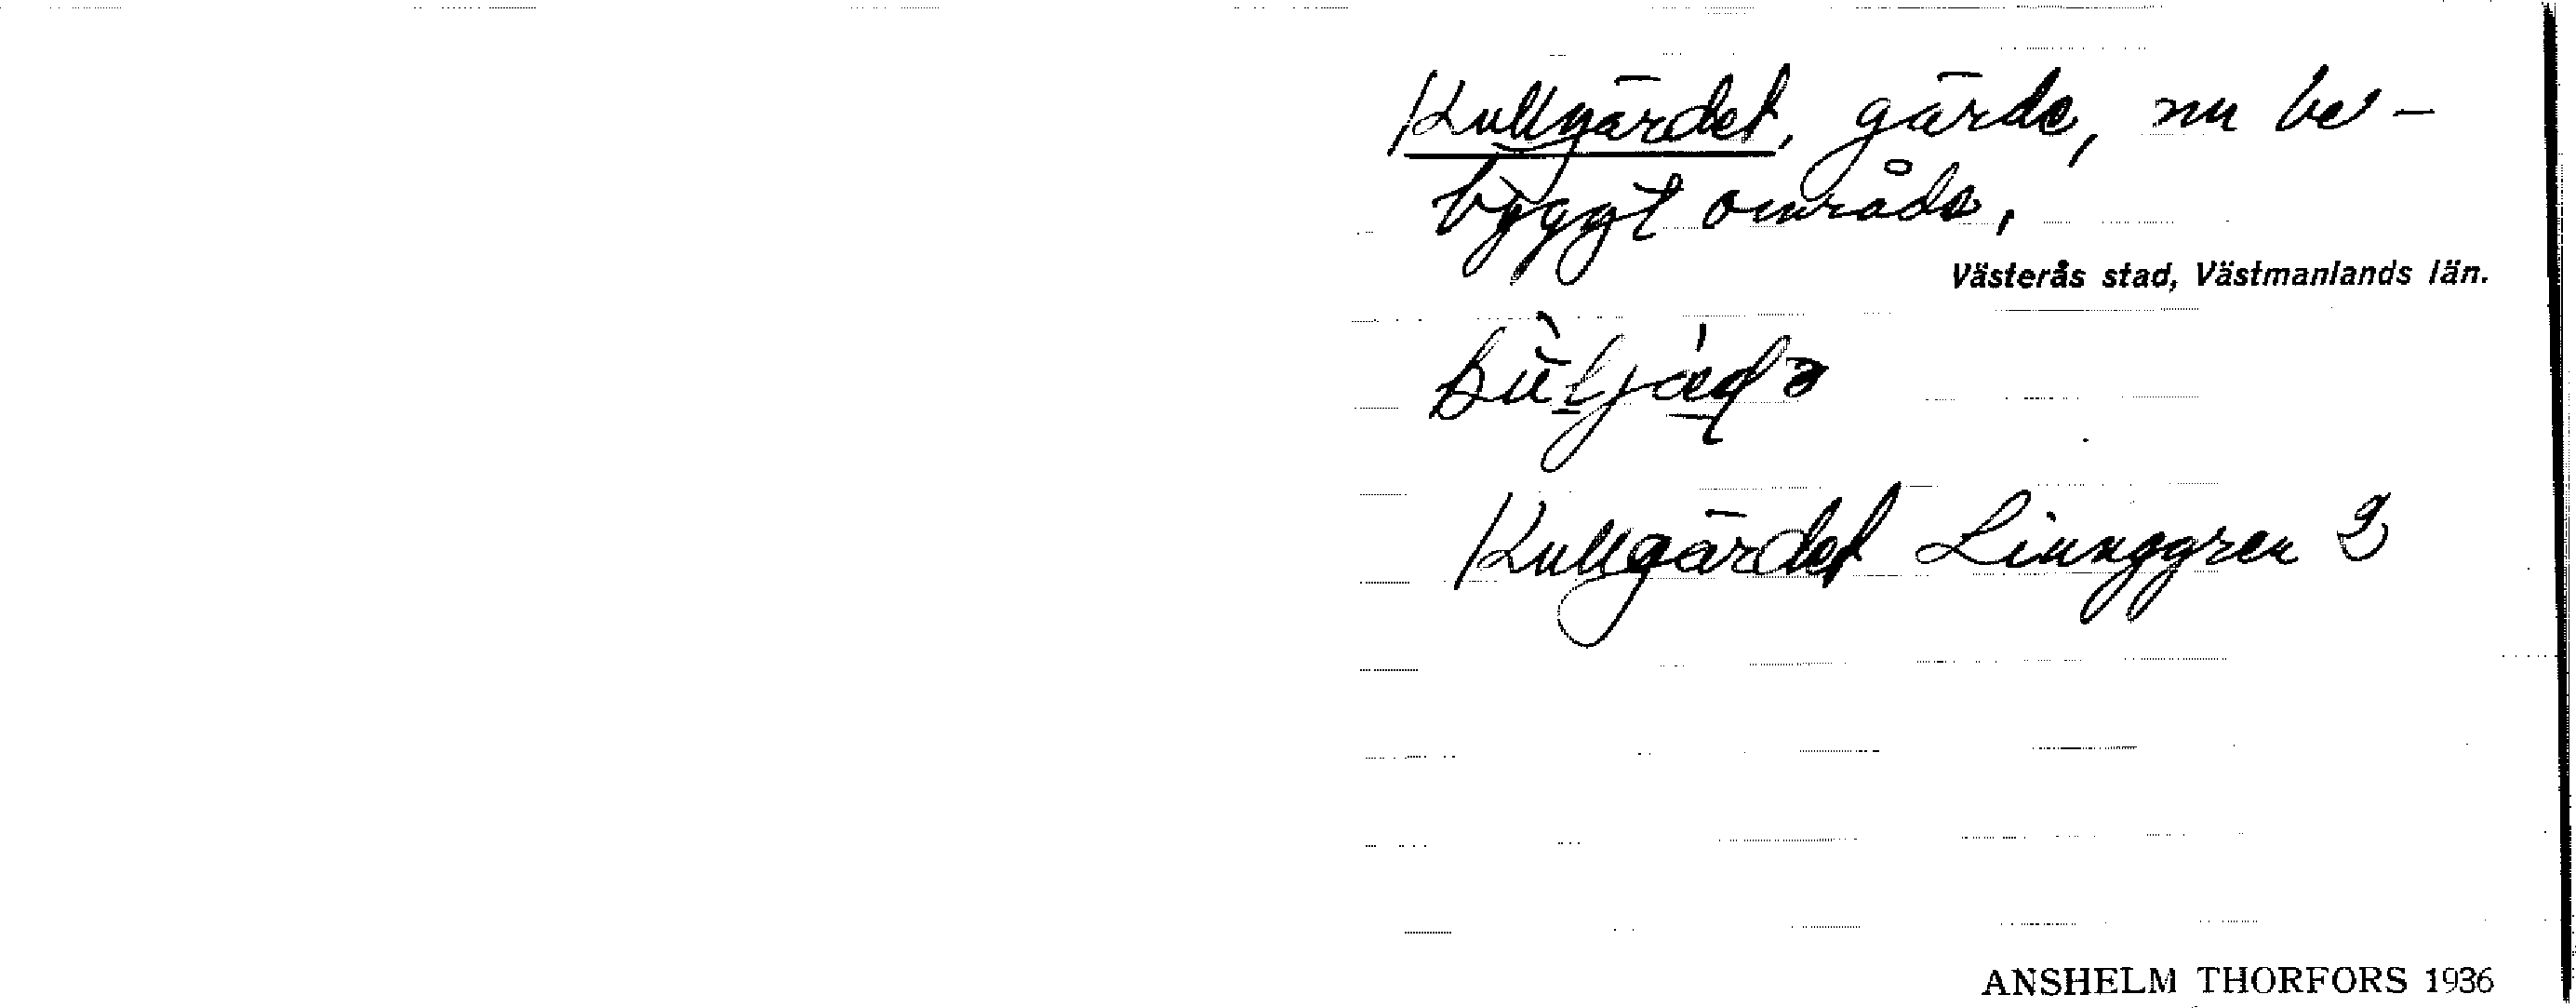 Kullgärdet, gärde, nu be-
byggt område,
Västerås stad, Västmanlands län.
Kullgärdet Linnggren 2
ANSHELM THORFORS 1936